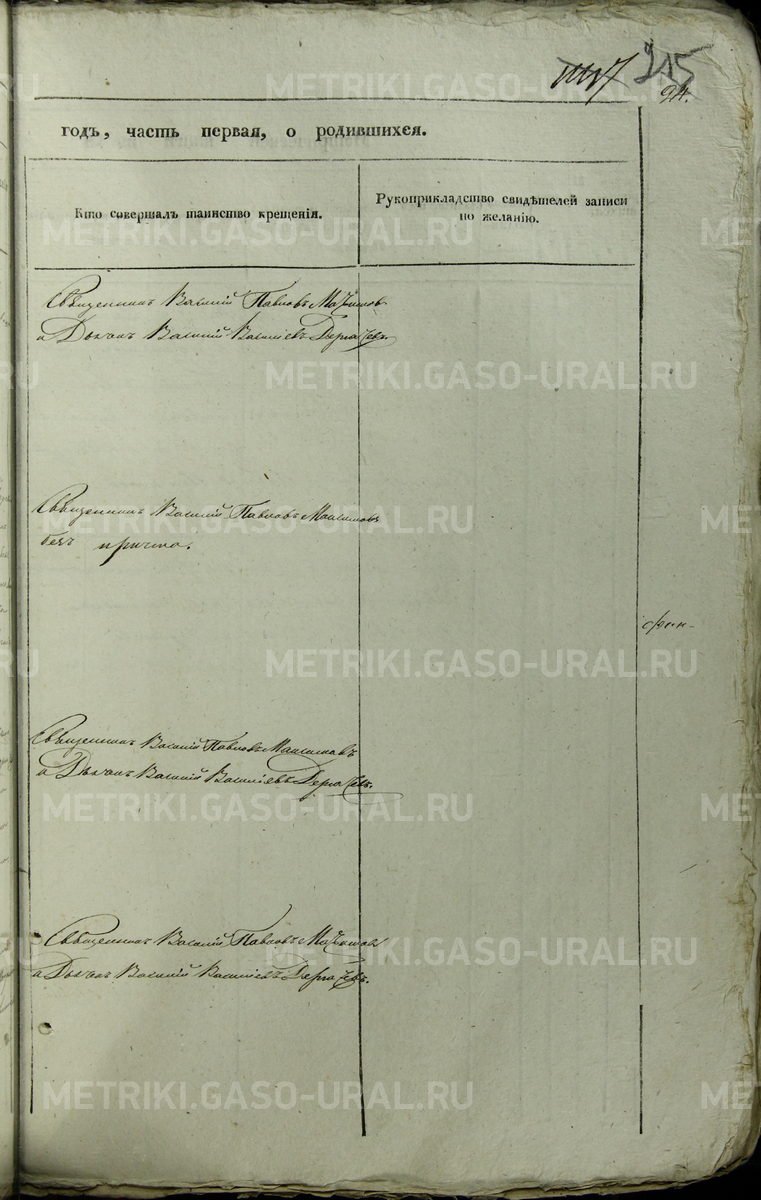 215
24.
годъ, часть первая, о родившихся.
Кто совершалъ таинство крещенія.
Рукоприкладство свидѣтелей записи
по желанію.
Священникъ Василій Павловъ Максимов
и Дьконъ Василій Василіевъ Дергачевъ.
Священникъ Василій Павловъ Максимовъ
безъ причта.
Священникъ Василій Павловъ Максимовъ
и Дьконъ Василій Василіевъ Дергачевъ.
Священникъ Василій Павловъ Максимовъ
и Дьконъ Василій Василіевъ Дергачевъ.
METRIKI.GASO-URAL.RU